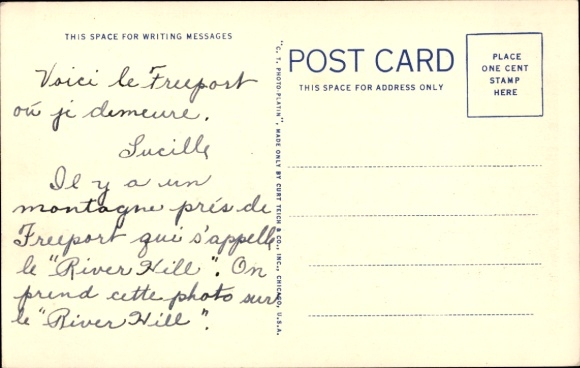 THIS SPACE FOR WRITING MESSAGES
Voici le Freeport
où je demeure.
Lucille
Il y a un
montagne près de
Freeport qui s'appelle
le "River Hill". On
prend cette photo sur
le "River Hill".
"C. T. PHOTO-PLATIN", MADE ONLY BY CURT TEICH & CO., INC., CHICAGO, U.S.A.
POST CARD
THIS SPACE FOR ADDRESS ONLY
PLACE
ONE CENT
STAMP
HERE